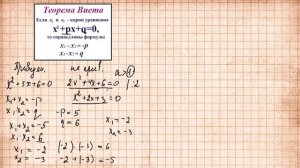 Теорема Виета
Если x₁ и x₂ - корни уравнения
x²+px+q=0,
то справедливы формулы
x₁ + x₂ = -p
x₁ · x₂ = q
Приведен.
не прив.
a≠1
x²+5x+6=0
2x²+4x+6=0 |:2
x²+2x+3=0
x₁+x₂=-p
x₁x₂=q
-p=5
q=6
x₁+x₂=-5
x₁x₂=6
x₁=-2
x₂=-3
x₁=-2
x₂=-3
(-2)·(-3)=6
-2+(-3)=-5